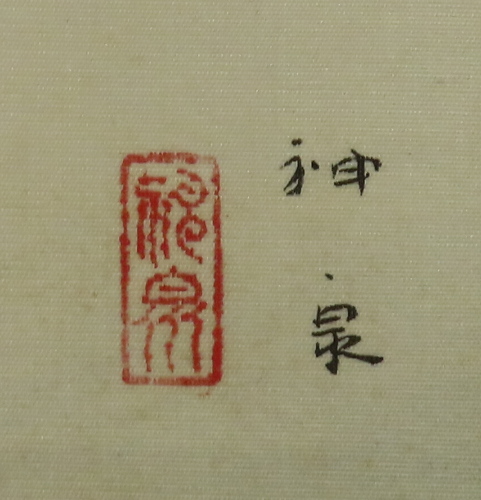 神泉
神泉